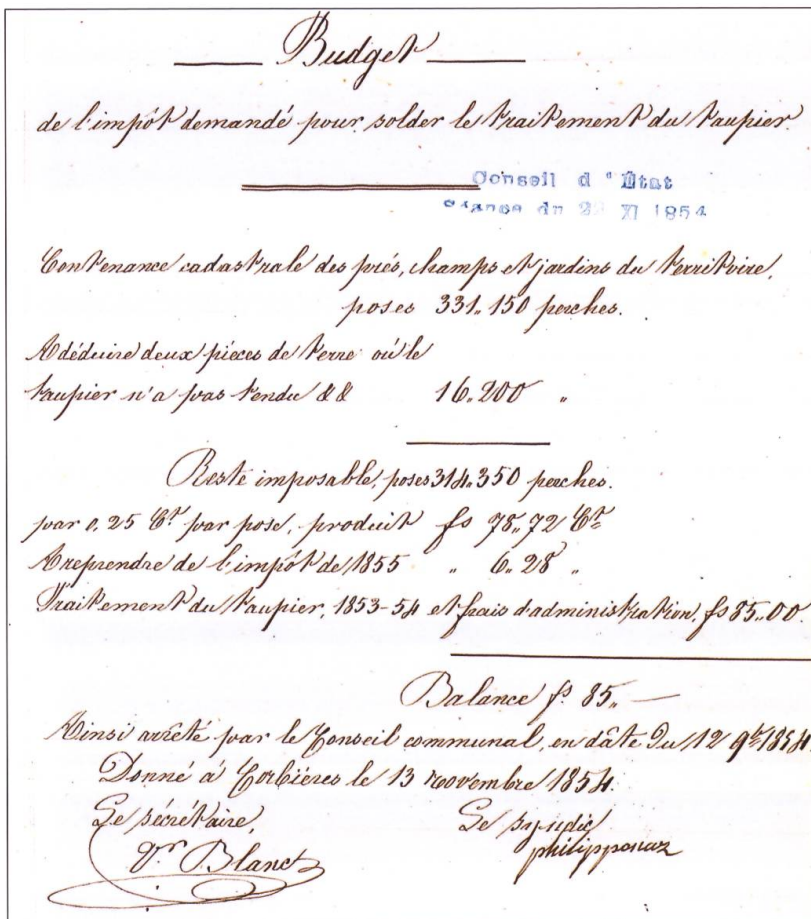 Budget
de l'impôt demandé pour solder le traitement du taupier.
Conseil d'État
Séance du 22 XI 1854
Contenance cadastrale des prés, champs et jardins du territoire,
poses 331„150 perches.
A déduire deux pièces de terre où le
taupier n'a pas tendu && 16„200 „
Reste imposable, poses 314„350 perches.
par 0,25 Ct par pose, produit fs 78„72 Cts
A reprendre de l'impôt de 1855 „ 6„28 „
Traitement du taupier, 1853-54 et frais d'administration, fs 85„00
Balance fs 85„—
Ainsi arrêté par le Conseil communal, en dâte du 12 9bre 1854.
Donné à Corbières le 13 novembre 1854.
Le sécrétaire, Le syndic
Blanc philipponaz